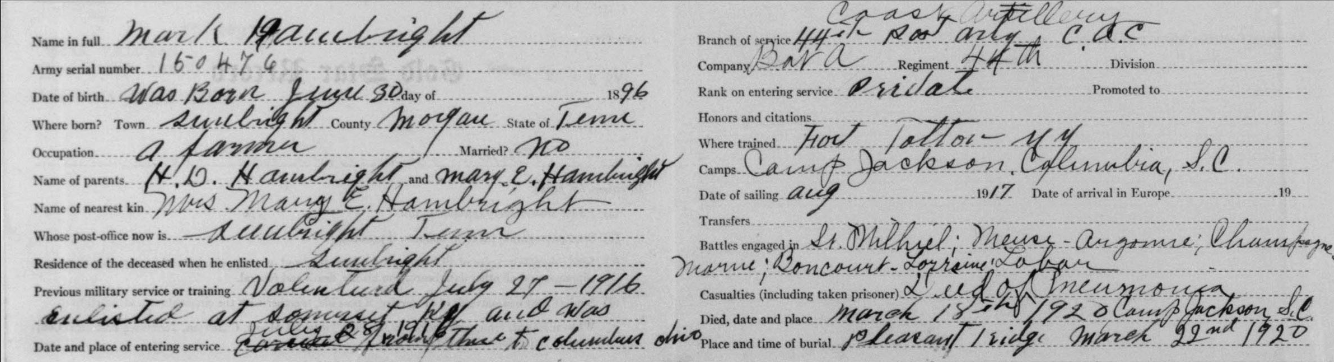 Name in full Mark Hambright
Army serial number 150476
Date of birth Was Born June 30 day of 1896
Where born? Town Sunbright County Morgan State of Tenn
Occupation a farmer Married? No
Name of parents H. D. Hambright and Mary E. Hambright
Name of nearest kin Mrs Mary E. Hambright
Whose post-office now is Sunbright Tenn
Residence of the deceased when he enlisted Sunbright
Previous military service or training Volenturd July 27 - 1916
enlisted at Somerset Ky and was
July 28, 1916
Date and place of entering service from there to Columbus Ohio
Coast Artillery
Branch of service 44th Arty C.A.C
Company Bat A Regiment 44th Division
Rank on entering service Pridate Promoted to
Honors and citations
Where trained Fort Totton NY
Camps Camp Jackson, Columbia, S.C.
Date of sailing Aug 1917 Date of arrival in Europe 19
Transfers
Battles engaged in St. Milhiel; Meuse-Argonne; Champagne
Marne; Boncourt-Lorraine;
Casualties (including taken prisoner) Died of Pneumonia
Died, date and place March 18th 1920 Camp Jackson, S.C.
Place and time of burial Pleasant Ridge March 22nd 1920